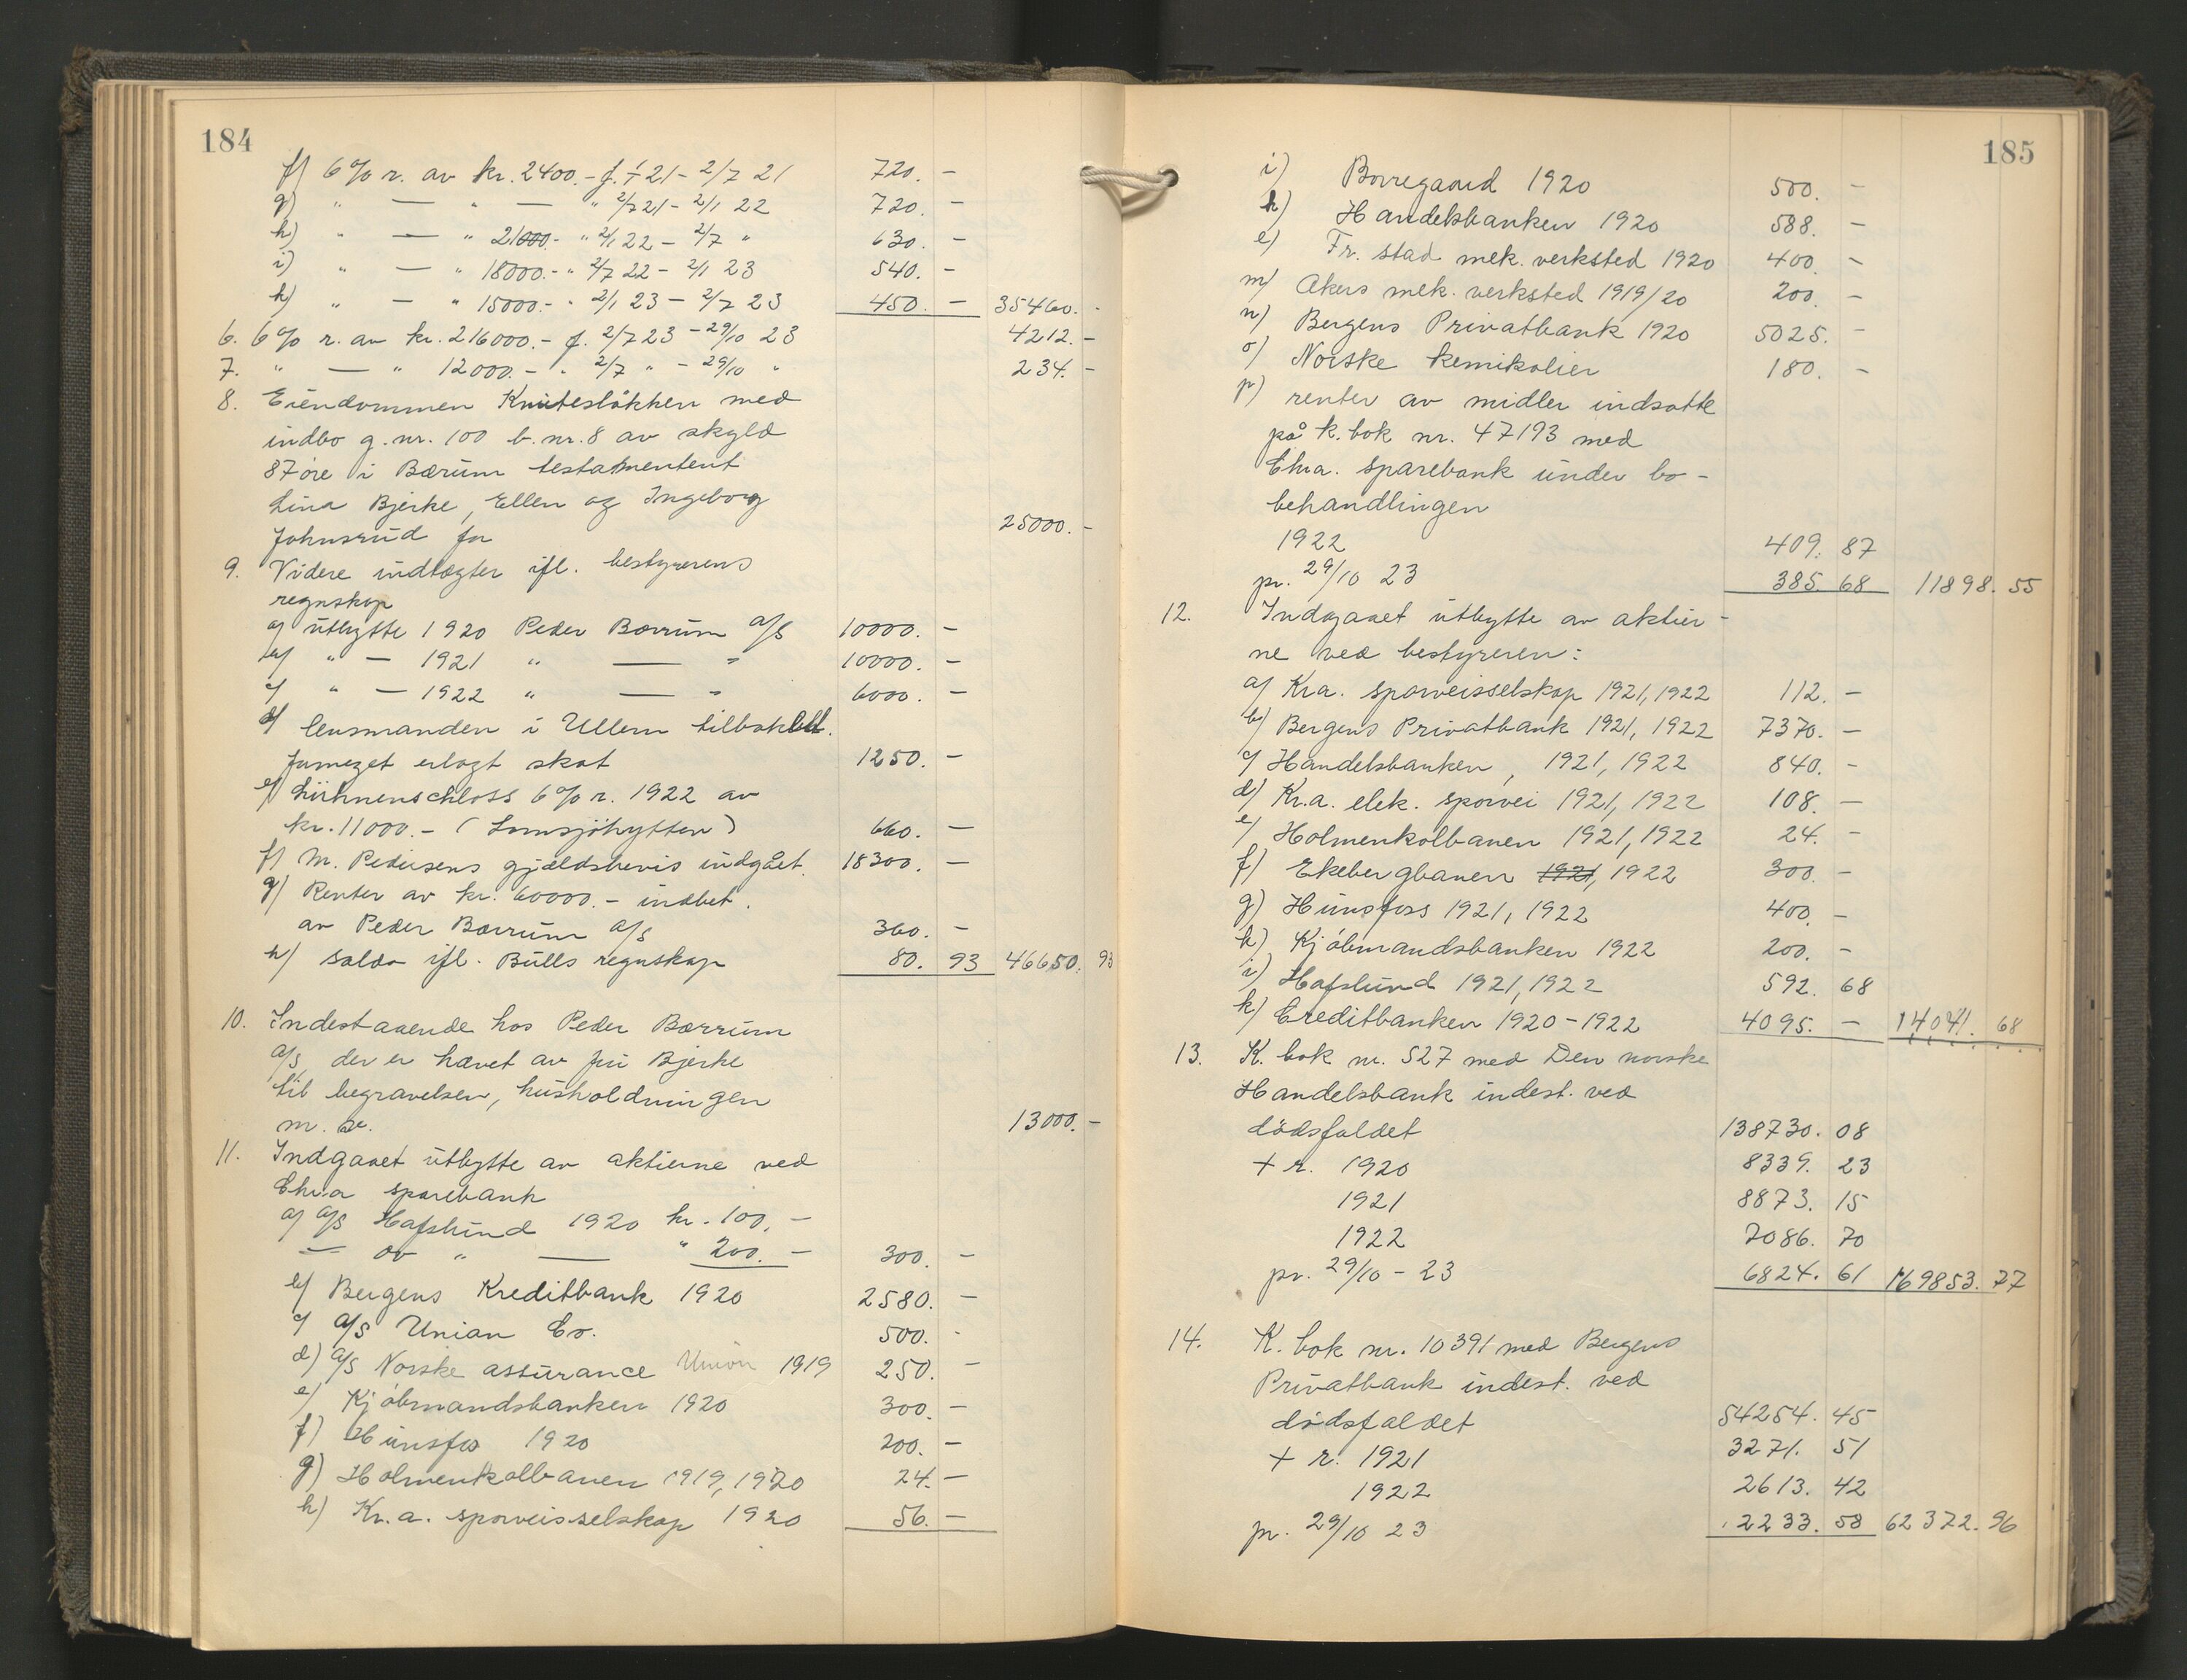 184
f) 6% r. av kr. 2400.- f. 2/1 21 - 2/7 21 720. -
g) " — " — " 2/7 21 - 2/1 22 720. -
h) " — " 21000.- " 2/1 22 - 2/7 " 630. -
i) " — " 18000.- " 2/7 22 - 2/1 23 540. -
k) " — " 15000.- " 2/1 23 - 2/7 23 450. - 35460. -
6. 6% r. av kr. 216000.- f. 2/7 23 - 29/10 23 4212. -
7. " — " 12000.- " 2/7 " - 29/10 " 234. -
8. Eiendommen Knutesløkken med
indbo g. nr. 100 b. nr. 8 av skyld
87 øre i Bærum testamentert
Lina Bjerke, Ellen og Ingeborg
Johnsrud for 25000. -
9. Videre indtægter ifl. bestyrerens
regnskap
a) utbytte 1920 Peder Børrum A/S 10000. -
b) " — 1921 " — " 10000. -
c) " — 1922 " — " 6000. -
d) lensmanden i Ullern tilbakbet.
formeget erlagt skat 1250. -
e) Lühnenschloss 6% r. 1922 av
kr. 11000.- (Lomsjöhytten) 660. -
f) M. Pedersens gjældsbevis indgået. 18300. -
g) Renter av kr. 60000.- indbet.
av Peder Børrum A/S 360. -
h) Saldo ifl. Bulls regnskap 80. 93 46650. 93
10. Indestaaende hos Peder Børrum
A/S der er hævet av fru Bjerke
til begravelsen, husholdningen
m. v. 13000. -
11. Indgaaet utbytte av aktierne ved
Chra sparebank
a) A/S Hafslund 1920 kr. 100. -
— av " — " 200. - 300. -
b) Bergens Kreditbank 1920 2580. -
c) A/S Union Co. 500. -
d) A/S Norske assurance Union 1919 250. -
e) Kjøbmandsbanken 1920 300. -
f) Hunsfos 1920 200. -
g) Holmenkolbanen 1919, 1920 24. -
h) Kr.a. sporveisselskap 1920 56. -
185
i) Borregaard 1920 500. -
k) Handelsbanken 1920 588. -
l) Fr. stad mek. verksted 1920 400. -
m) Akers mek. verksted 1919/20 200. -
n) Bergens Privatbank 1920 5025. -
o) Norske kemikalier 180. -
p) renter av midler indsatte
på k. bok nr. 47193 med
Chra. sparebank under bo-
behandlingen
1922 409. 87
pr. 29/10 23 385. 68 11898. 55
12. Indgaaet utbytte av aktier-
ne ved bestyreren:
a) Kra. sporveisselskap 1921, 1922 112. -
b) Bergens Privatbank 1921, 1922 7370. -
c) Handelsbanken, 1921, 1922 840. -
d) Kr.a. elek. sporvei 1921, 1922 108. -
e) Holmenkolbanen 1921, 1922 24. -
f) Ekebergbanen 1921, 1922 300. -
g) Hunsfoss 1921, 1922 400. -
h) Kjøbmandsbanken 1922 200. -
i) Hafslund 1921, 1922 592. 68
k) Creditbanken 1920-1922 4095. - 14041. 68
13. K. bok nr. 527 med Den norske
Handelsbank indest. ved
dødsfaldet 138730. 08
+ r. 1920 8339. 23
1921 8873. 15
1922 7086. 70
pr. 29/10 - 23 6824. 61 169853. 77
14. K. bok nr. 10391 med Bergens
Privatbank indest. ved
dødsfaldet 54254. 45
+ r. 1921 3271. 51
1922 2613. 42
pr. 29/10 23 2233. 58 62372. 96